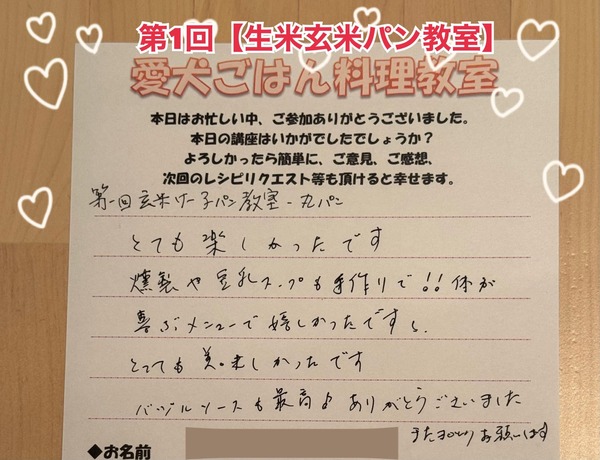 第1回【生米玄米パン教室】
愛犬ごはん料理教室
本日はお忙しい中、ご参加ありがとうございました。
本日の講座はいかがでしたでしょうか?
よろしかったら簡単に、ご意見、ご感想、
次回のレシピリクエスト等も頂けると幸せます。
第一回玄米 パン教室 丸パン
とても楽しかったです
燻製や豆乳スープも手作りで!!体が
喜ぶメニューで嬉しかったです
とっても美味しかったです
バジルソースも最高♪ありがとうございました
また お願いします
◆お名前